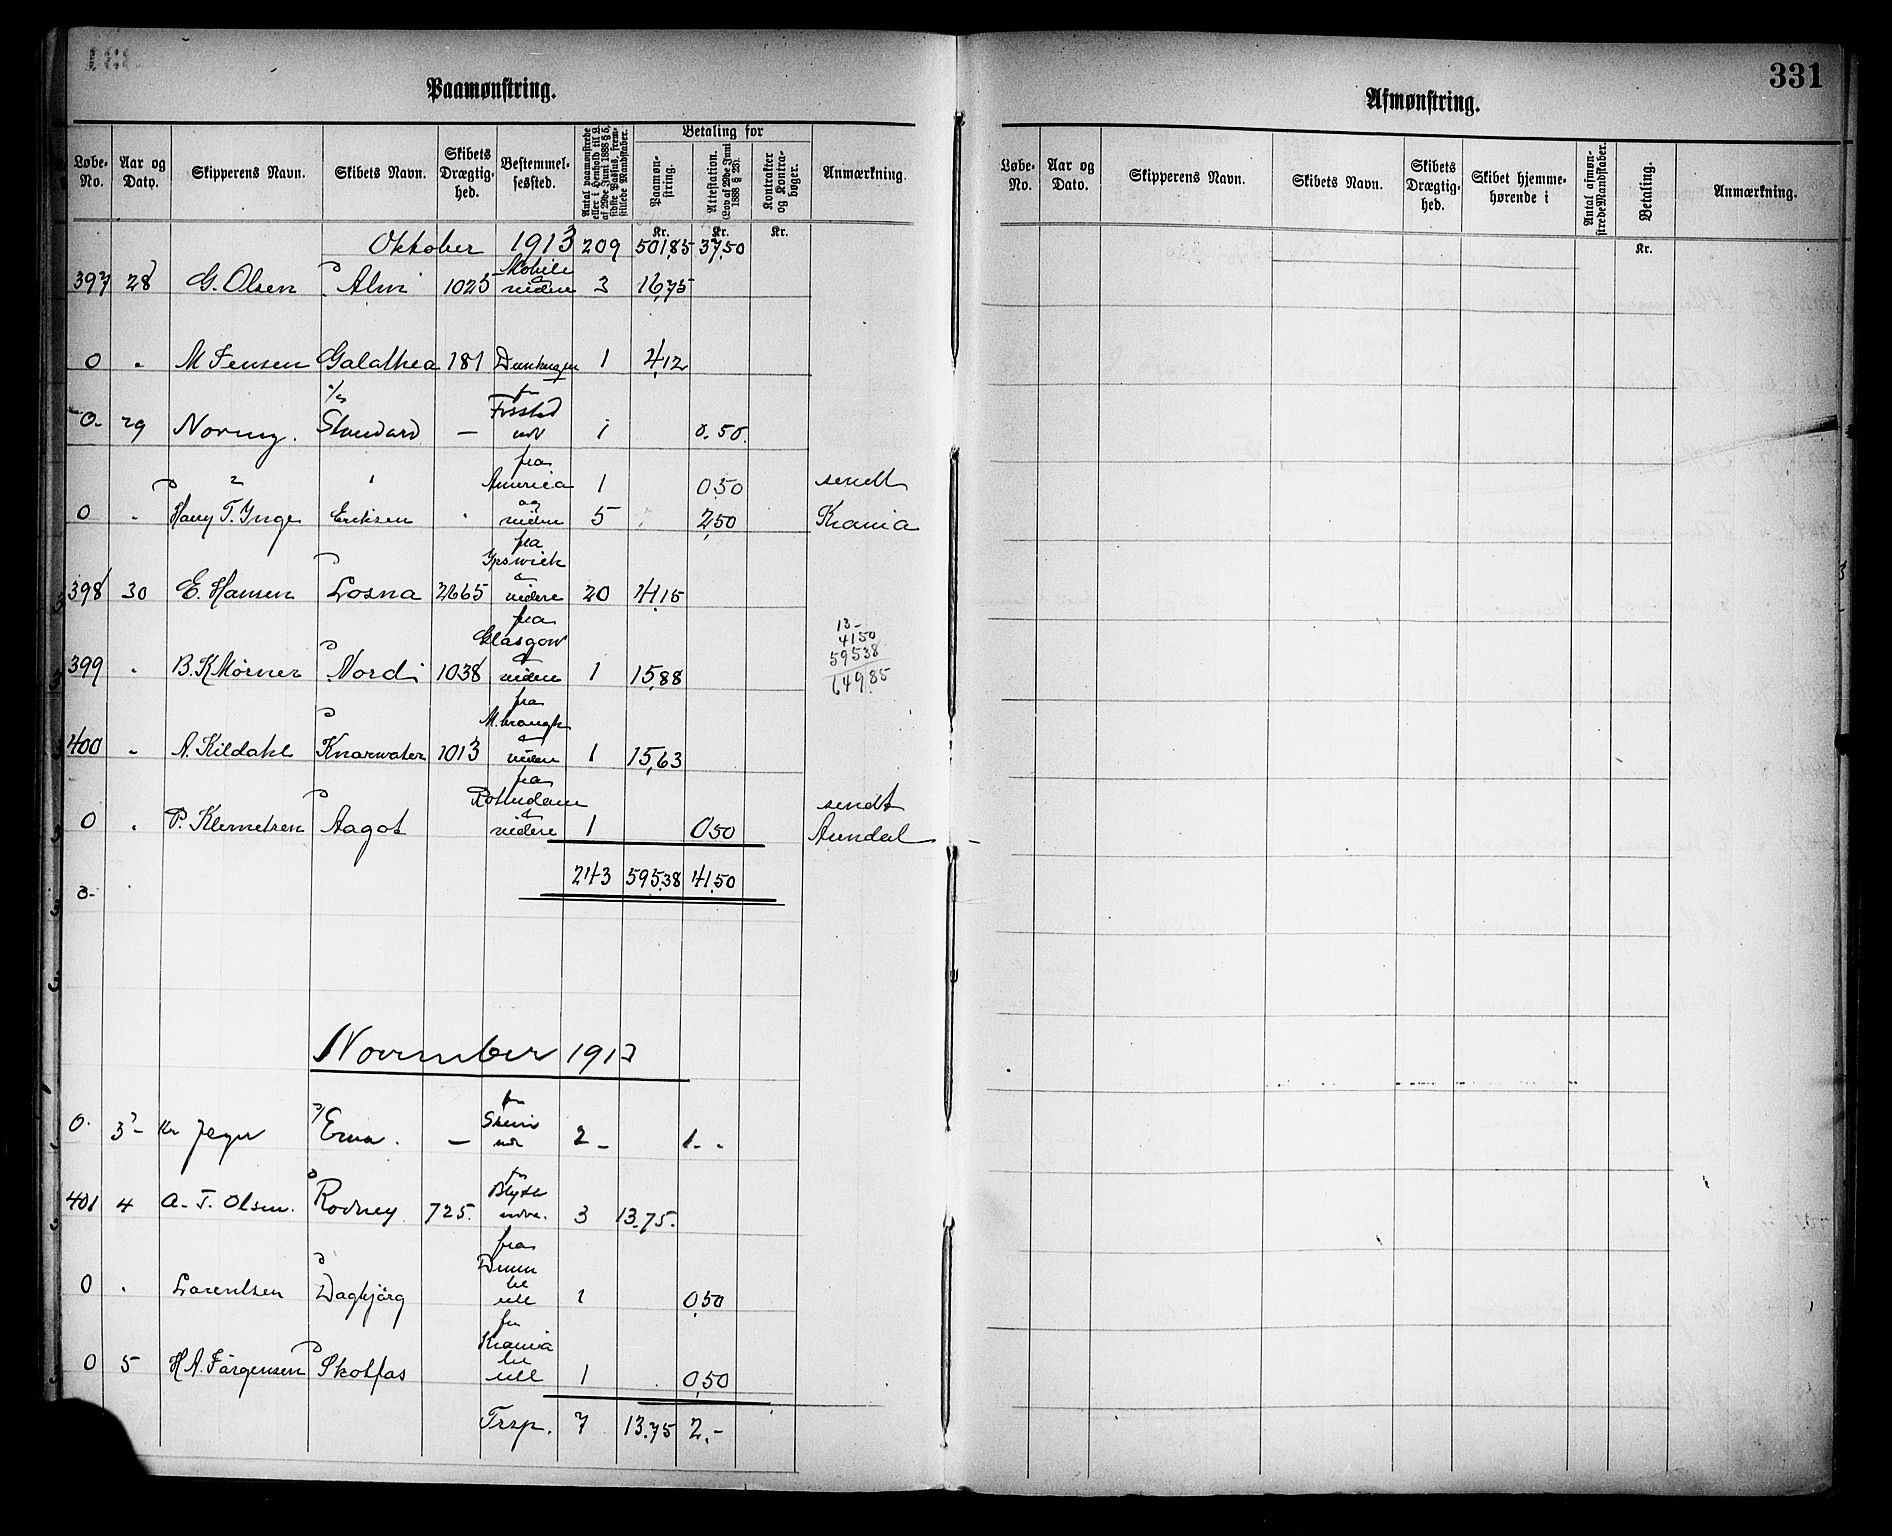 Paamønstring.
Løbe-No. Aar og Dato. Skipperens Navn. Skibets Navn. Skibets Drægtighed. Bestemmelsessted. Antal paamønstrede eller i Henhold til L. af 29de Juni 1888 § 5, sidste Passus, fremstillede Mandskaber. Betaling for Paamønstring. Attestation. (Lov af 29de Juni 1888 § 23). Kontrakter og Kontrabøger. Anmærkning.
Kr. Kr. Kr.
Oktober 1913 209 501,85 37,50
397 28 G. Olsen Alm 1025 Mobile & videre 3 16,75
0 " M Jensen Galathea 181 1 4,12
0 29 Standard — 1 0.50.
" " fra America 1 0,50 sendt
0 " Harry T. Inge Eriksen " og videre 5 2,50 Krania
398 30 E. Hansen Losna 2665 fra Ipswich & videre 20 41,15
399 " B. K Mörner Nordi 1038 fra Glasgow & videre 1 15,88
13-
4150
59538
649,85
400 " A. Kildahl Knarwater 1013 fra M.brough & videre 1 15,63
0 " P. Klemetsen Aagot fra Rotterdam & videre 1 0,50 sendt Arendal
243 595,38 41,50
0-
November 1913
0. 3- Erna. — 2 - 1. -
401 4 A. T. Olsen. Rodney 725. 3 13.75.
0 " Larentsen Dagbjörg fra 1 0,50
0 5 H A. Jörgensen Skotfos fra Krania 1 0,50
Trsp. 7 13.75 2.-
331
Afmønstring.
Løbe-No. Aar og Dato. Skipperens Navn. Skibets Navn. Skibets Drægtighed. Skibet hjemmehørende i Antal afmønstrede Mandskaber. Betaling. Anmærkning.
Kr.